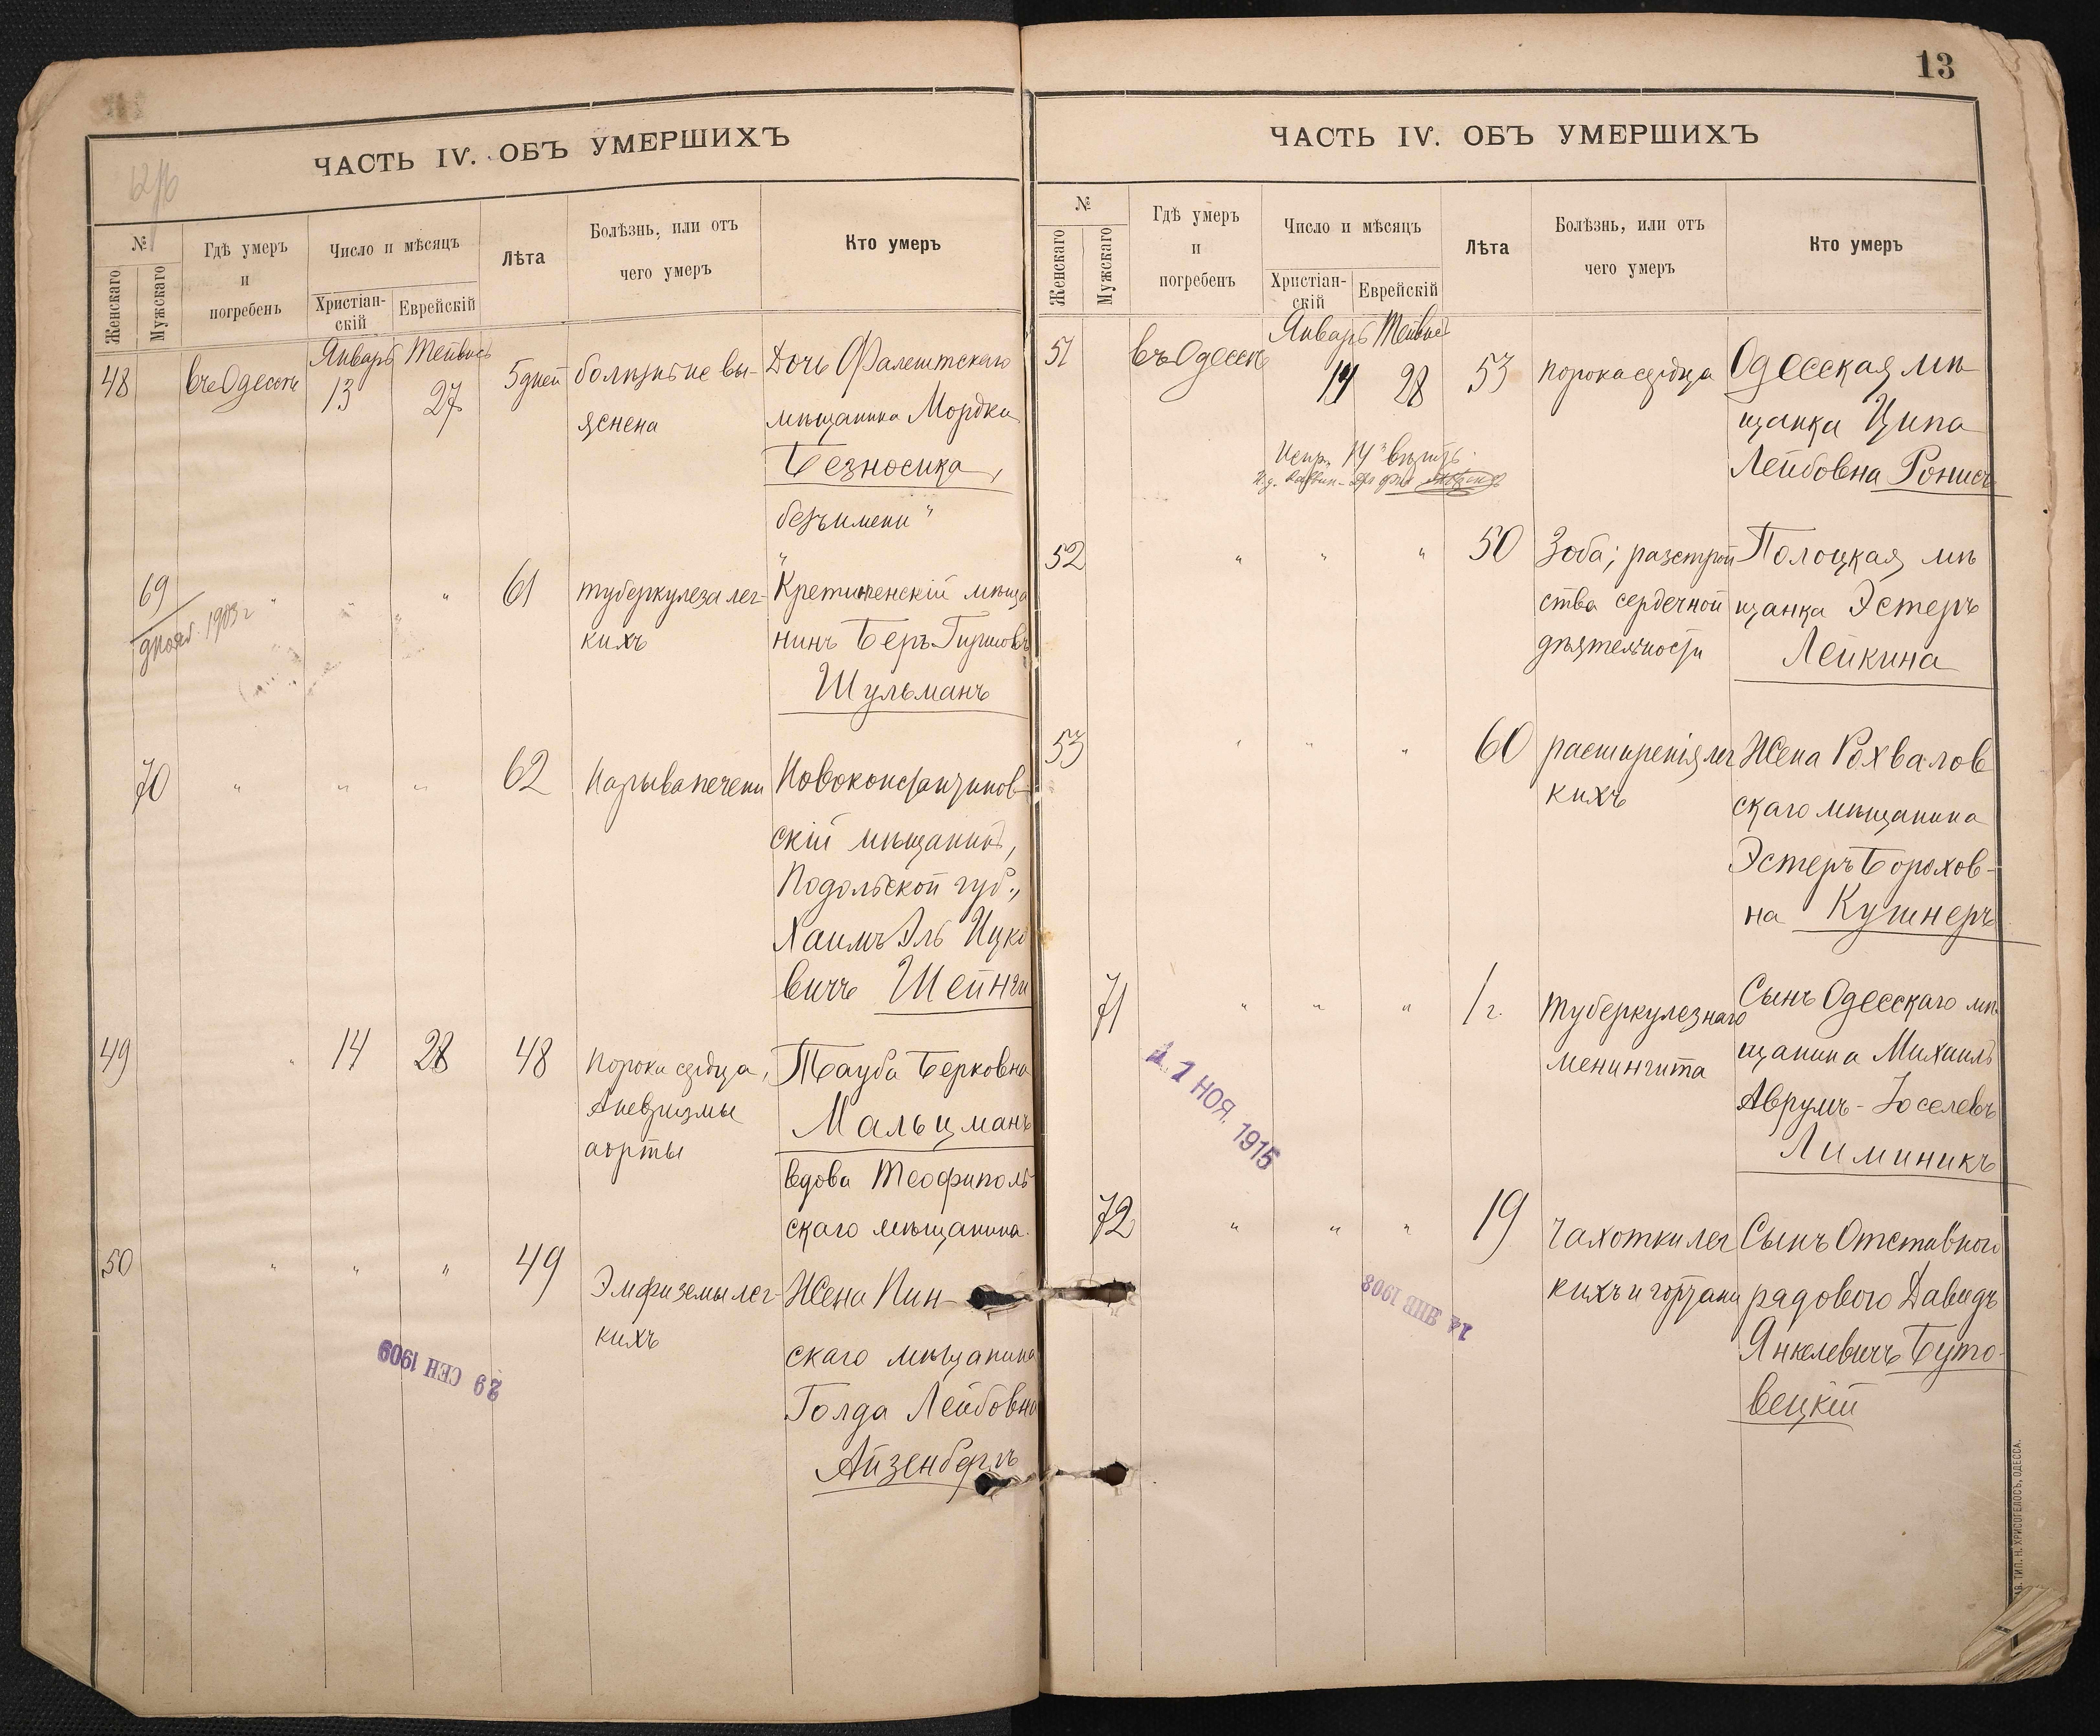 ЧАСТЬ IV. ОБЪ УМЕРШИХЪ
№
Женскаго
Мужскаго
Гдѣ умеръ
и
погребенъ
Число и мѣсяцъ
Христіан-
скій
Еврейскій
Лѣта
Болѣзнь, или отъ
чего умеръ
Кто умеръ
Январь Тейвись
48 въ Одессѣ 13 27 5 дней болѣзнь не вы-
яснена
Дочь Фалештскаго
мѣщанина Мордки
Безносика,
безъ имени "
69 " " " 61 туберкулеза лег-
кихъ
1903 г
Кретингенскій мѣща
нинъ Беръ Гершовъ
Шульманъ
70 " " " 62 Нарыва печени
Новоконстантинов-
скій мѣщанинъ,
Подольской губ.,
Хаимъ Эль Ицко
вичъ Шейнги
49 " 14 28 48 Порока сердца,
Аневризмы
аорты
Тауба Берковна
Мальцманъ
вдова Теофиполь
скаго мѣщанина.
50 " " " 49 Эмфиземы лег-
кихъ
Жена Пин-
скаго мѣщанина
Голда Лейбовна
Айзенбергъ
29 СЕН 1909
13
ЧАСТЬ IV. ОБЪ УМЕРШИХЪ
№
Женскаго
Мужскаго
Гдѣ умеръ
и
погребенъ
Число и мѣсяцъ
Христіан-
скій
Еврейскій
Лѣта
Болѣзнь, или отъ
чего умеръ
Кто умеръ
Январь Тейвись
51 въ Одессѣ 14 28 53 порока сердца
Одесская мѣ
щанка Ципа
Лейбовна Ронисъ
Испр. 14 вѣрить.
52 " " " 50 Зоба; разстрой
ства сердечной
дѣятельности
Полоцкая мѣ
щанка Эстеръ
Лейкина
53 " " " 60 расширенія лег
кихъ
Жена Рохвалов
скаго мѣщанина
Эстеръ Борохов-
на Кушнеръ
71 " " " 1 г. Туберкулезнаго
менингита
Сынъ Одесскаго мѣ
щанина Михаилъ
Аврумъ-Іоселевъ
Лиминикъ
11 НОЯ. 1915
72 " " " 19 Чахотки лег
кихъ и гортани
Сынъ Отставного
рядового Давидъ
Янкелевичъ Буто-
вецкій
14 ЯНВ 1908
ТИП. Н. ХРИСОГЕЛОСЪ, ОДЕССА.